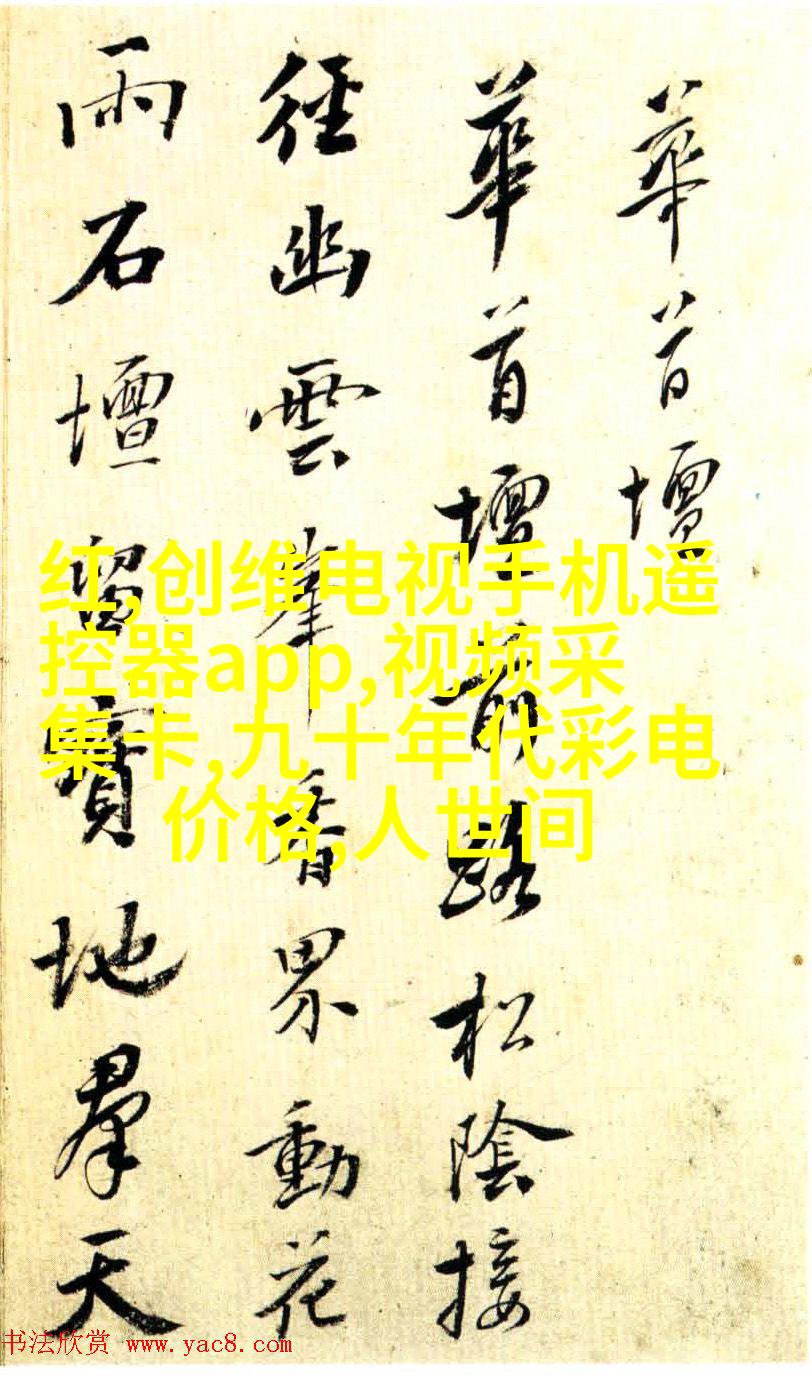 華首壇
華首壇前路松陰接
徑幽雲峯香界動花
雨石壇留寶地羣天
红,创维电视手机遥
控器app,视频采
集卡,九十年代彩电
价格,人世间
书法欣赏 www.yac8.com